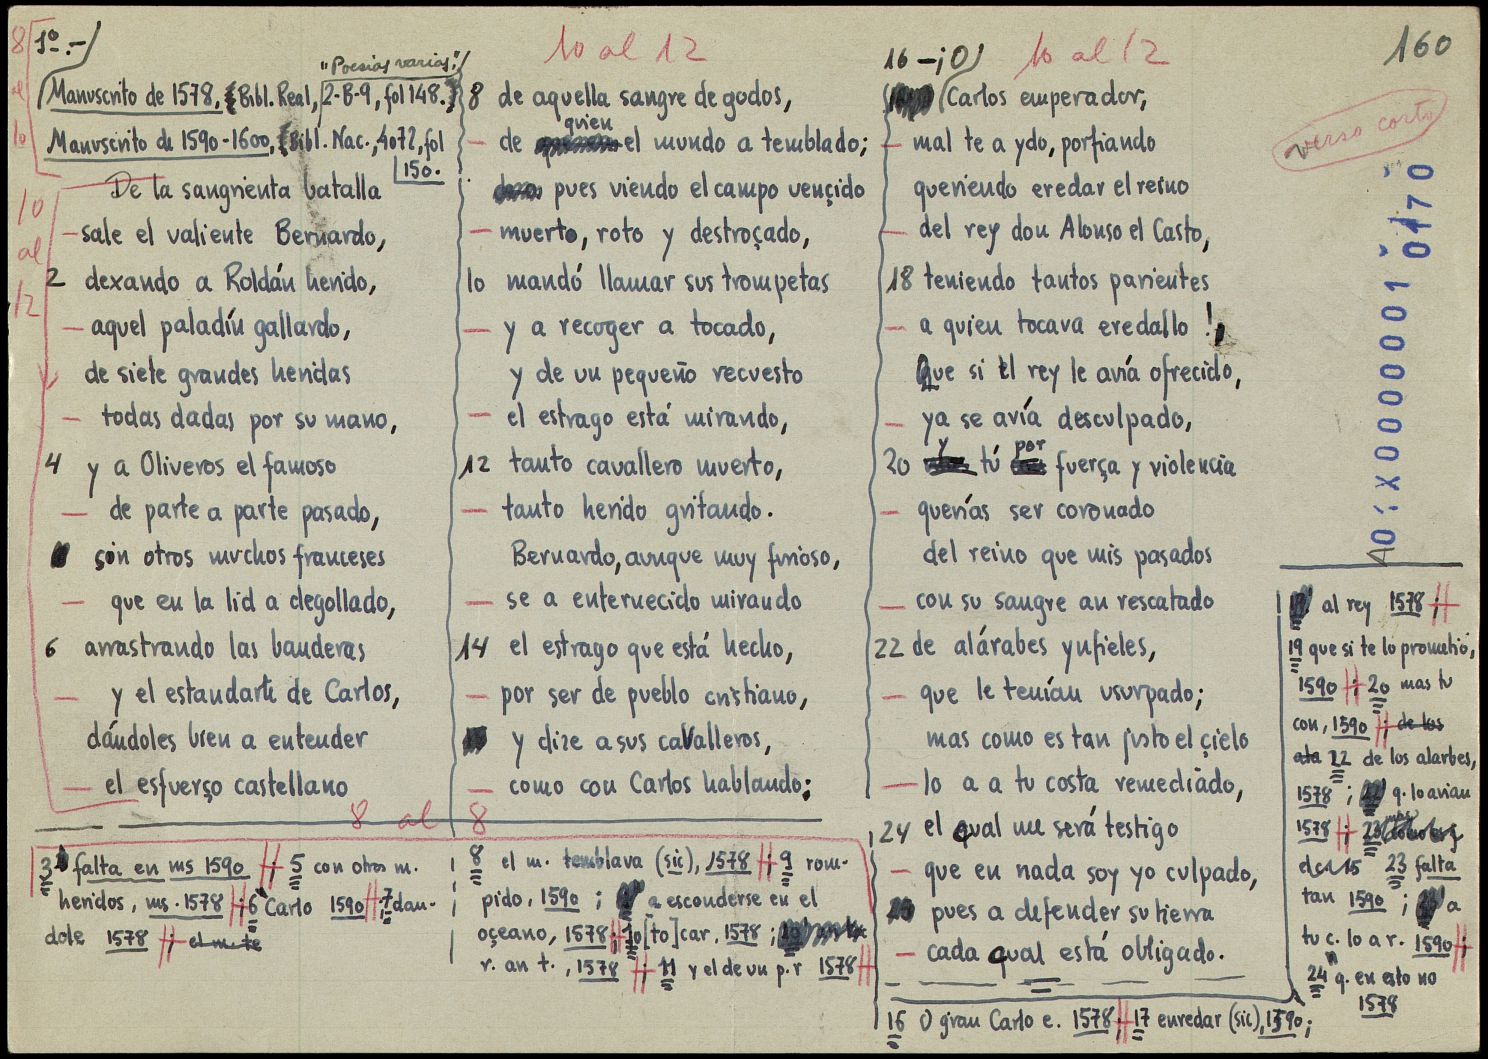 8 al 10
1º.-
"Poesías varias",
Manuscrito de 1578, Bibl. Real, 2-B-9, fol 148.
Manuscrito de 1590-1600, Bibl. Nac., 4072, fol
150.
10 al 12
De la sangrienta batalla
— sale el valiente Bernardo,
2 dexando a Roldán herido,
— aquel paladín gallardo,
de siete grandes heridas
— todas dadas por su mano,
4 y a Oliveros el famoso
— de parte a parte pasado,
sin otros muchos franceses
— que en la lid a degollado,
6 arrastrando las banderas
— y el estandarte de Carlos,
dándoles bien a entender
— el esfuerço castellano
8 al 8
3 falta en ms 1590 ; 5 con otros m.
heridos, ms. 1578 ; 6 Carlo 1590 ; 7 dan-
dole 1578 ; el m. te
10 al 12
8 de aquella sangre de godos,
quien
— de el mundo a temblado;
pues viendo el campo vençido
— muerto, roto y destroçado,
10 mandó llamar sus trompetas
— y a recoger a tocado,
y de un pequeño recuesto
— el estrago está mirando,
12 tanto cavallero muerto,
— tanto herido gritando.
Bernardo, aunque muy furioso,
— se a enternecido mirando
14 el estrago que está hecho,
— por ser de pueblo cristiano,
y dize a sus cavalleros,
— como con Carlos hablando;
8 el m. temblava (sic), 1578 ; 9 rom-
pido, 1590 ; a esconderse en el
oçeano, 1578 ; 10 [to]car, 1578 ;
r. an t., 1578 ; 11 y el de un p. r 1578
10 al 12
16 -¡O
Carlos emperador,
— mal te a ydo, porfiando
queriendo eredar el reino
— del rey don Alonso el Casto,
18 teniendo tantos parientes
— a quien tocava eredallo!
Que si el rey le avía ofrecido,
— ya se avía desculpado,
y por
20 tú fuerça y violencia
— querías ser coronado
del reino que mis pasados
— con su sangre an rescatado
22 de alárabes ynfieles,
— que le tenían usurpado;
mas como es tan justo el çielo
— lo a a tu costa remediado,
24 el qual me será testigo
— que en nada soy yo culpado,
pues a defender su tierra
— cada qual está obligado.
16 O gran Carlo e. 1578 ; 17 enredar (sic), 1590;
160
verso corto
A0::X0000000001 0170
al rey 1578 ;
19 que si te lo prometió,
1590 ; 20 mas tu
con, 1590 ; de los
ala 22 de los alarbes,
1578 ; q. lo avian
1578 ; 23
23 falta
tan 1590 ; a
tu c. lo a r. 1590 ;
24 q. en esto no
1578